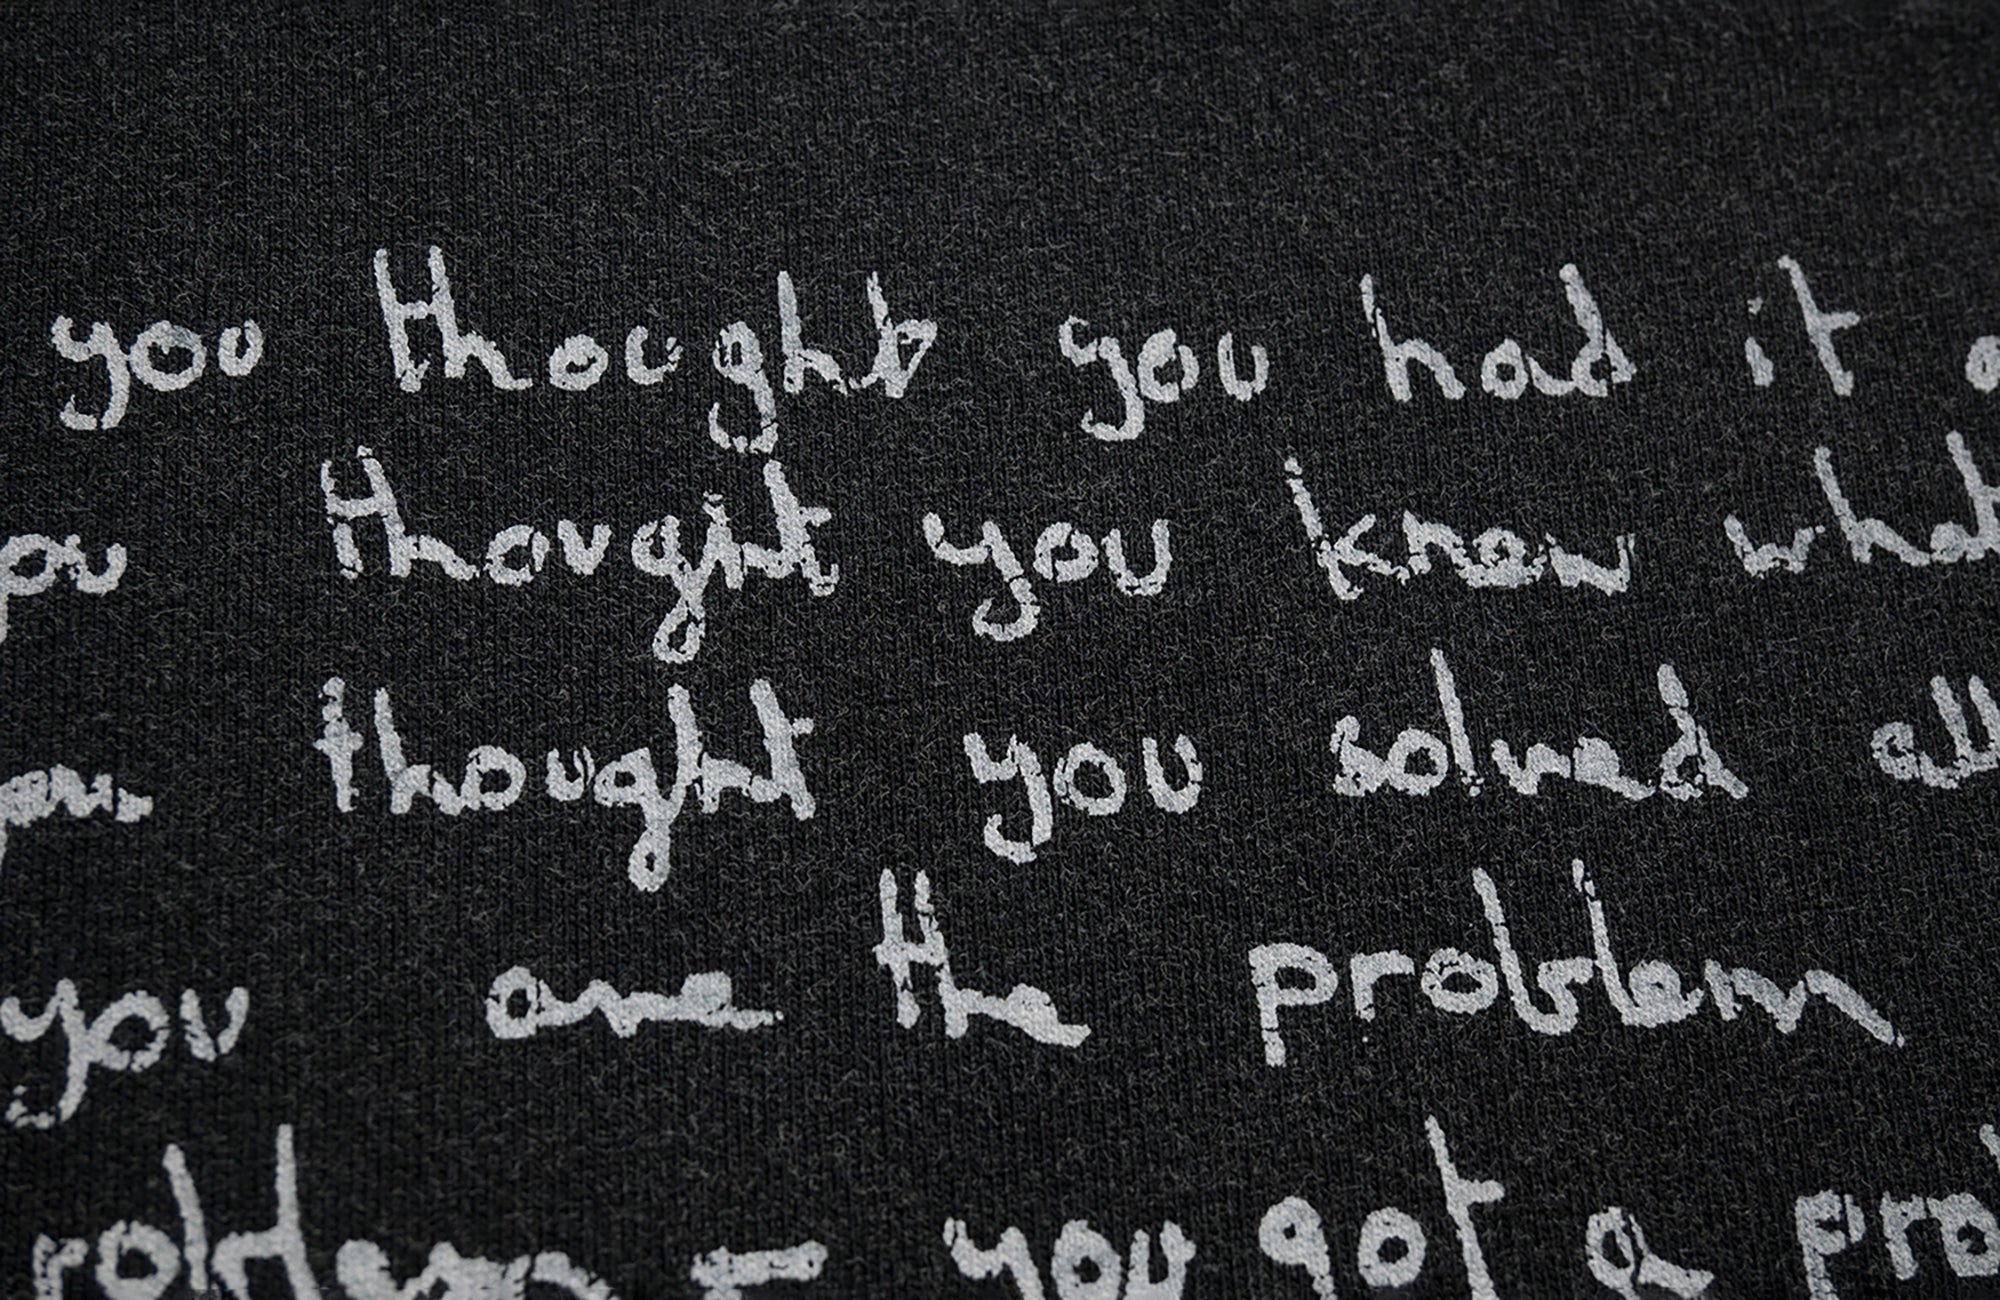 you thought you had it a
ou thought you knew what
you thought you solved all
you are the problem
roblem - you got a pro